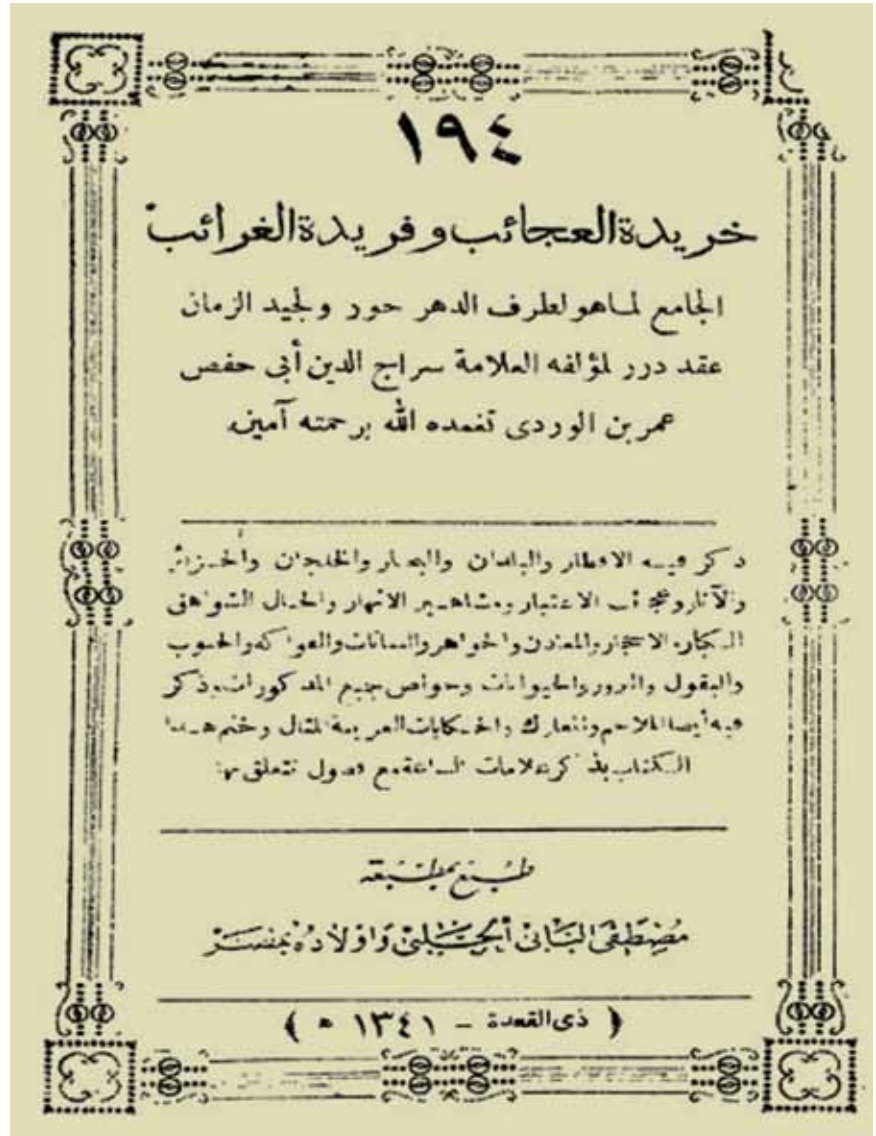 ١٩٤
خريدة العجائب وفريدة الغرائب
الجامع لما هو لطرف الدهر حور ولجيد الزمان
عقد درر لمؤلفه العلامة سراج الدين أبى حفص
عمر بن الوردى تغمده الله برحمته آمين
ذكر فيه الاقطار والبلدان والبحار والخلجان والجزائر
والآثار وعجائب الاعتبار ومشاهير الانهار والجبال الشواهق
الكبار والاحجار والمعادن والجواهر والنباتات والفواكه والحبوب
والبقول والبزور والحيوانات وخواص جميع المذكورات وذكر
فيه أيضا الملاحم والمعارك والحكايات الغريبة المثال وختم هذا
الكتاب بذكر علامات الساعة مع فصول تتعلق بها
طبع بمطبعة
مصطفى البابى الحلبى وأولاده بمصر
( ذى القعدة - ١٣٤١ ه )